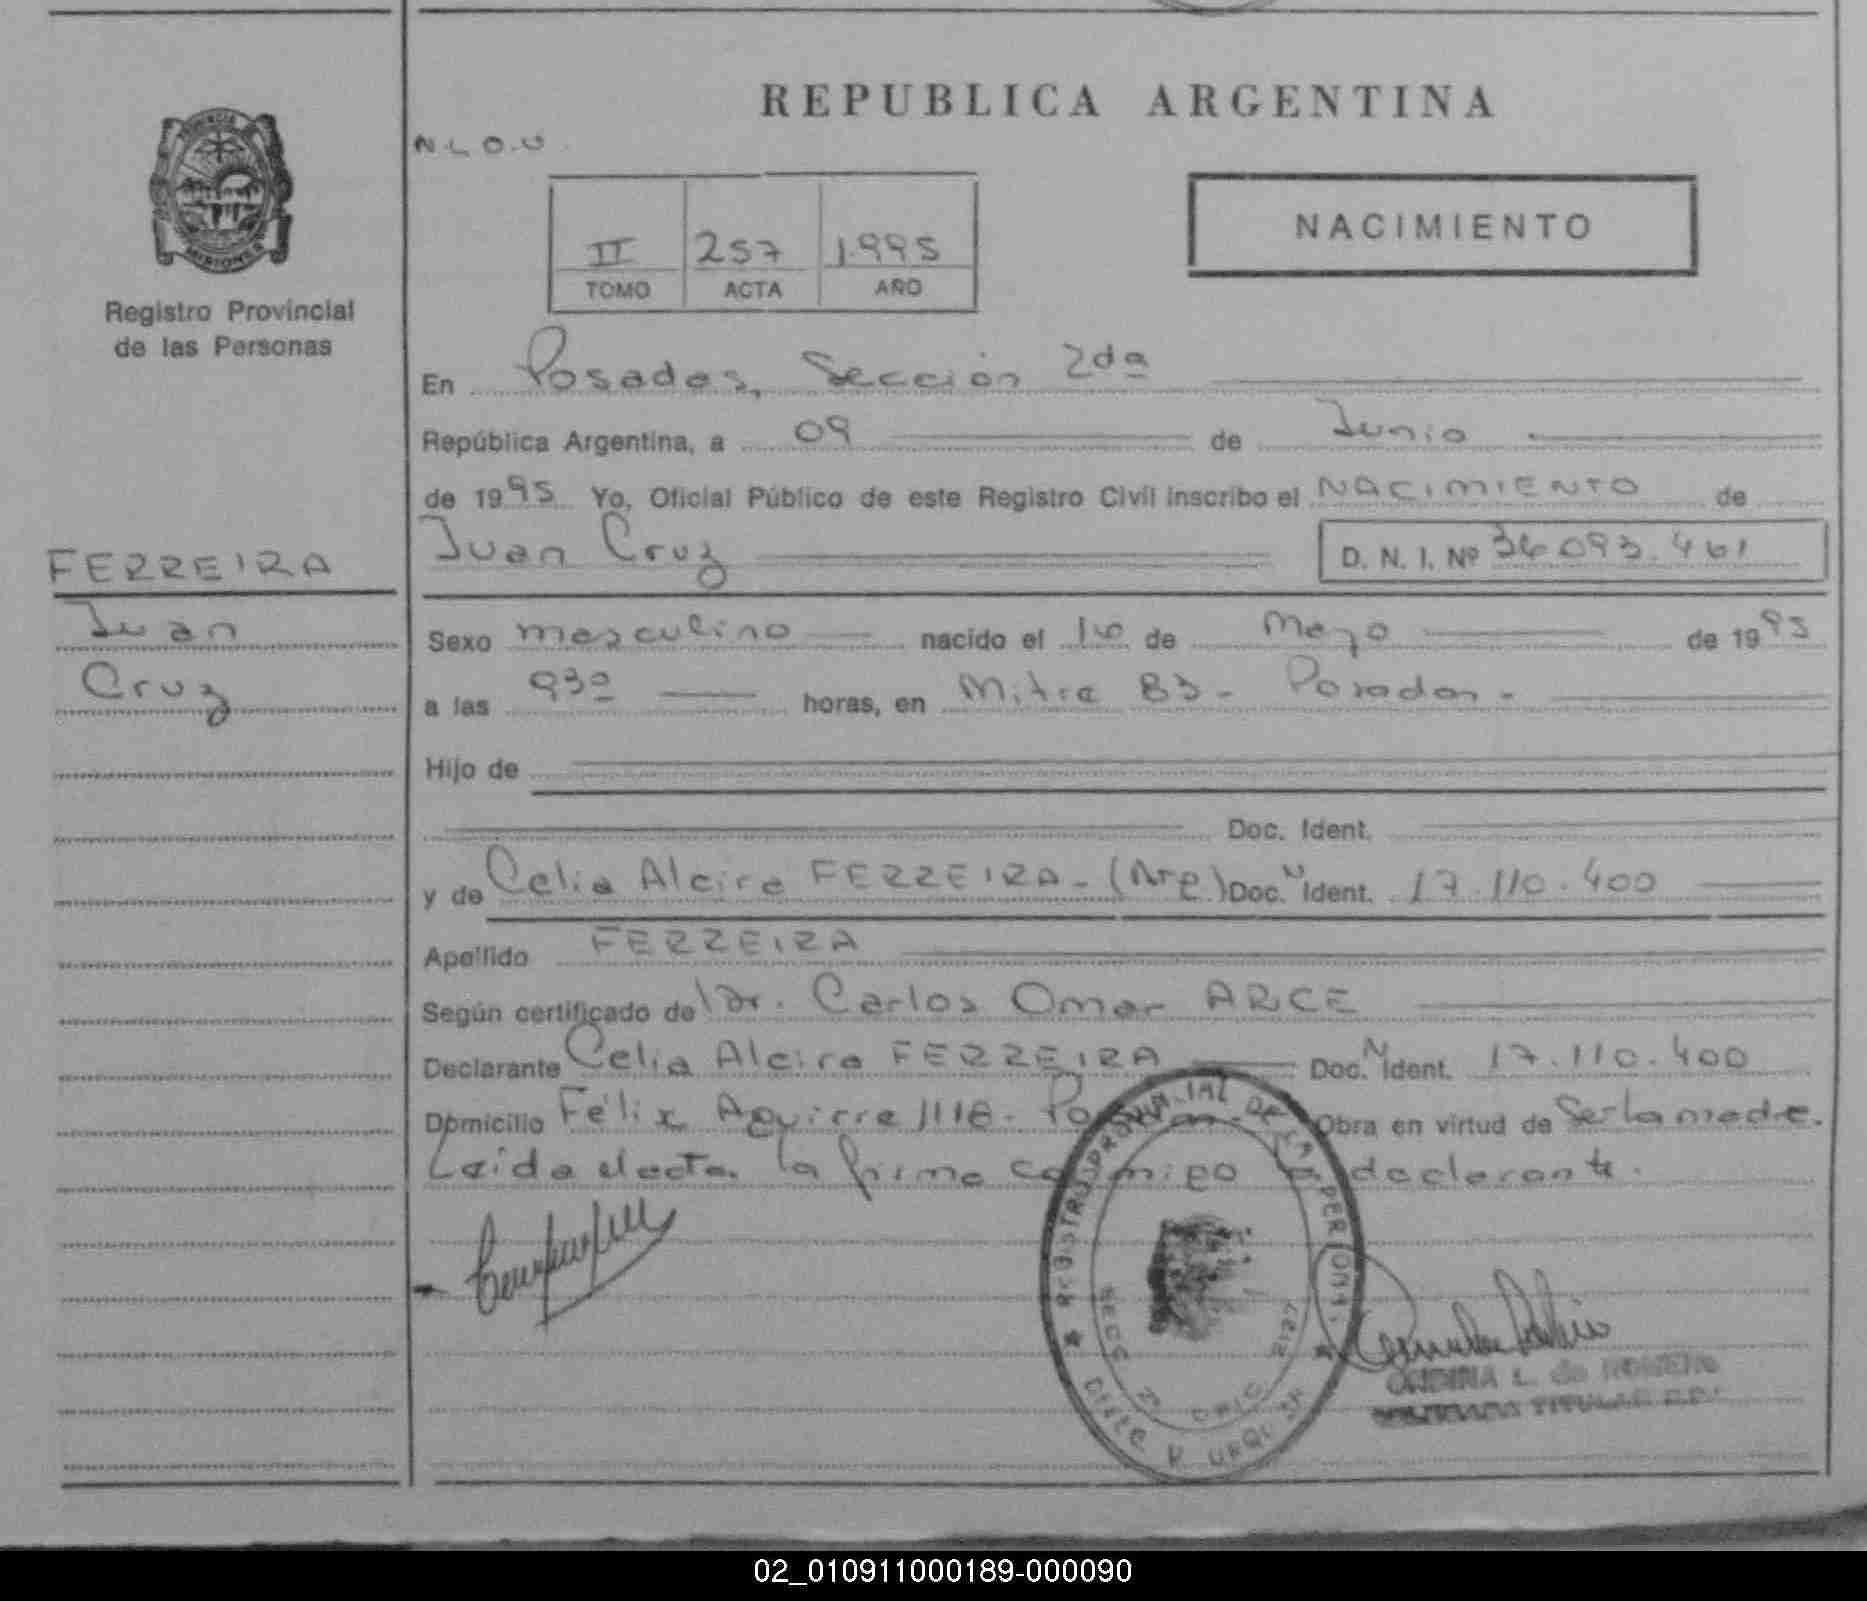 REPUBLICA ARGENTINA
N.L.O.U.
PROVINCIA
MISIONES
Registro Provincial
de las Personas
II 257 1.995
TOMO ACTA AÑO
NACIMIENTO
En Posadas, Sección 2da
República Argentina, a 09 de Junio
de 1995 Yo, Oficial Público de este Registro Civil inscribo el NACIMIENTO de
Juan Cruz D. N. I. Nº 36.093.461
FERREIRA
Juan
Cruz
Sexo masculino nacido el 10 de Mayo de 1995
a las 930 horas, en Mitre 83 - Posadas -
Hijo de
Doc. Ident.
y de Celia Alcira FERREIRA - (Arg) Doc. N Ident. 17.110.400
Apellido FERREIRA
Según certificado de Dr. Carlos Omar ARCE
Declarante Celia Alcira FERREIRA Doc. N Ident. 17.110.400
Domicilio Félix Aguirre 1118 - Posadas - Obra en virtud de Ser la madre.
Leída el acta la firma conmigo la declarante.
REGISTRO PROVINCIAL DE LAS PERSONAS
SECC 2
ONDINA L. de ROMERO
TITULAR
02_010911000189-000090